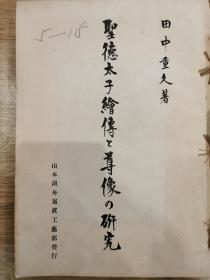 田中重久著
聖德太子繪傳と尊像の研究
山本湖舟寫眞工藝部發行
5-15